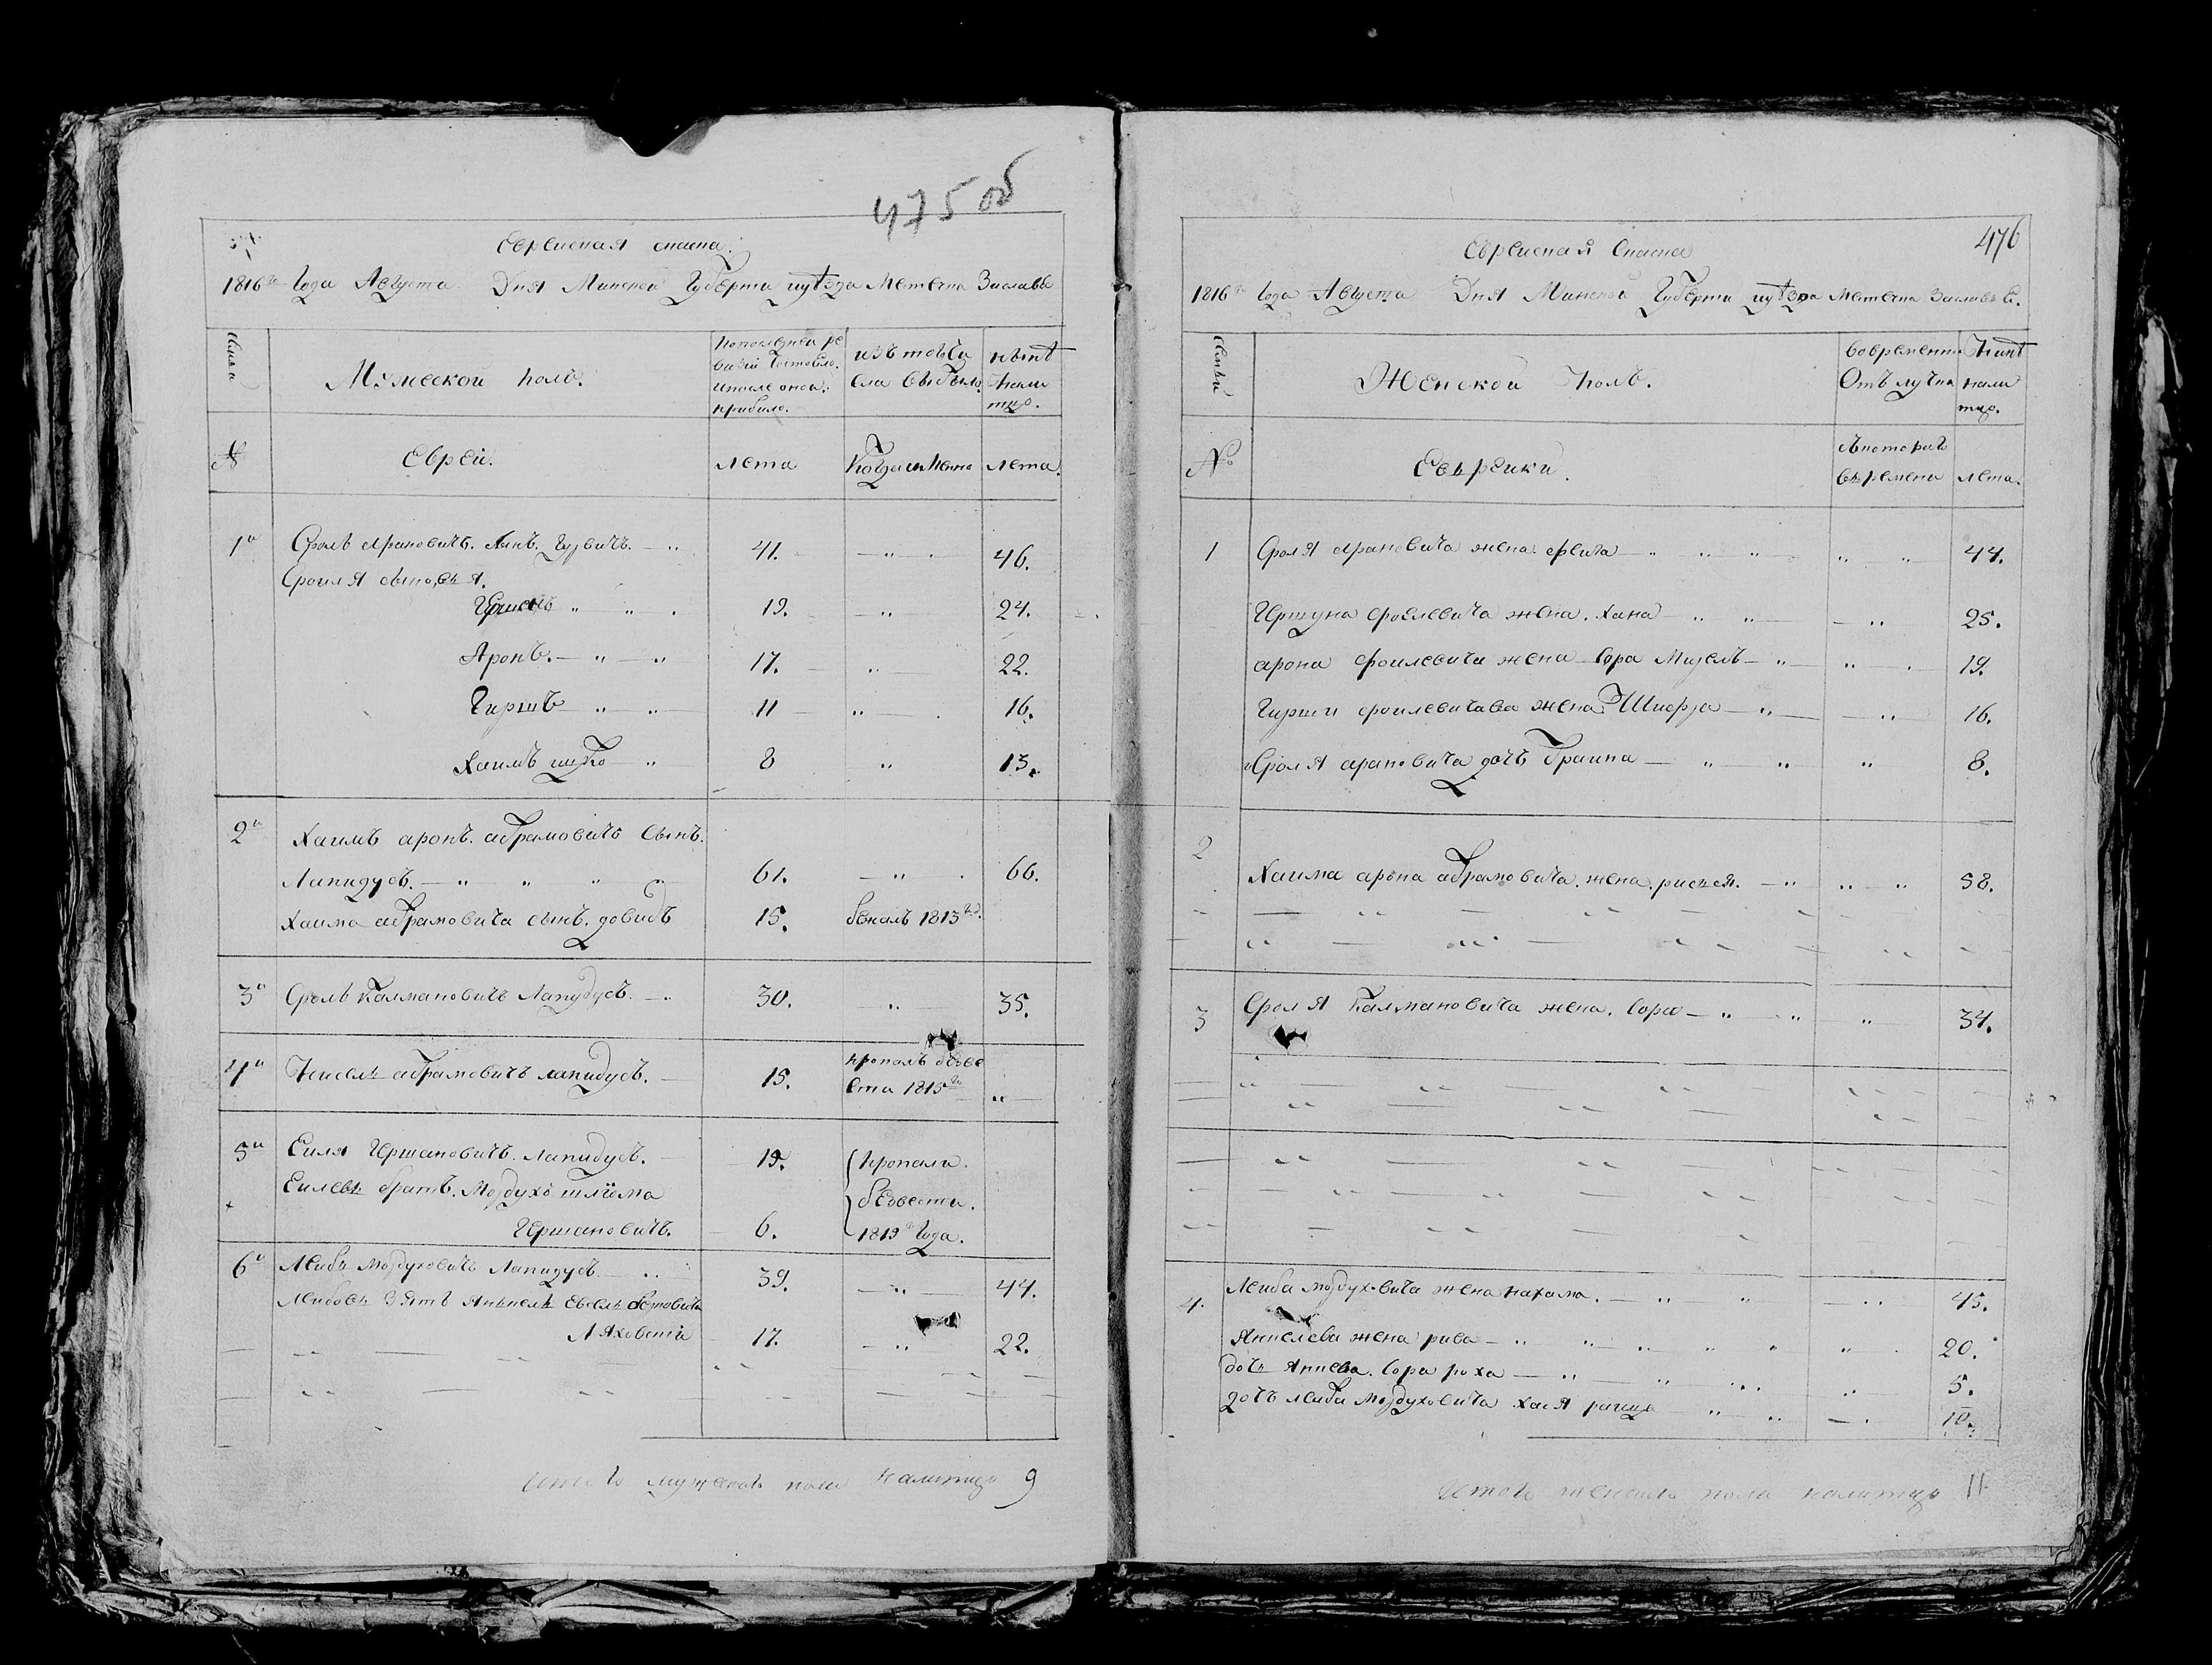 475 об
Евреиская скаска.
1816го Года Августа Дня Минской Губерни и уѣзда Местечка Заславье
Семьи
Мужеской полъ.
По последней ре
визии состояло.
и после оной.
прибыло.
изъ того чи
сла выбыло.
нынѣ
нали
тцо.
№
Евреи.
лета
Когда именно
лета.
1й
Сроль Арановичъ. Янк. Гурвичъ.
41.
46.
Сроиля сыновья.
Гершенъ
19.
24.
Аронъ.
17.
22.
Гиршъ
11
16.
Хаимъ ицко
8
13.
2й
Хаимъ аронъ. абрамовичъ сынъ.
Лапидусъ.
61.
66.
Хаима абрамовича сынъ. довидъ
15.
бежалъ 1813го.
3й
Сроль Калмановичъ Лапидусъ.
30.
35.
4й
абрамовичъ лапидусъ.
15.
пропалъ безве
сти 1815го
5й
Еиля Гершановичъ. лапидусъ.
19.
Пропали.
Еилевъ братъ. Мордухъ шліома
безвести.
Гершановичъ.
6.
1813го Года.
6й
Леибъ Мордуховичъ Лапидусъ
39.
44.
Леибовъ Зять
Ляховский
17.
22.
итого мужеска пола налитцо 9
476
Евреиская Скаска
1816го Года Августа Дня Минской Губерни и уѣзда Местечка Заславье.
Семьи
Женской полъ.
во временной
Отълучки
Нынѣ
нали
тцо.
№
Евъреики.
съ которагъ
въремени
лета.
1
Сроля Арановича жена. фрейда
44.
Гершуна сролевича жена. хана
25.
арона сроилевича жена Сора
19.
Гирши сроилевича жена Шифра
16.
Сроля арановича дочъ Браина
8.
2
Хаима арона абрамовича. жена.
58.
3
Сроля Калмановича жена. Сора
34.
4.
Леиба мордуховича жена нахама.
45.
Янкелева жена рива
20.
дочъ Сора роха
5.
дочъ леиба Мордуховича Хая
10.
Итого женска пола налитцо 11